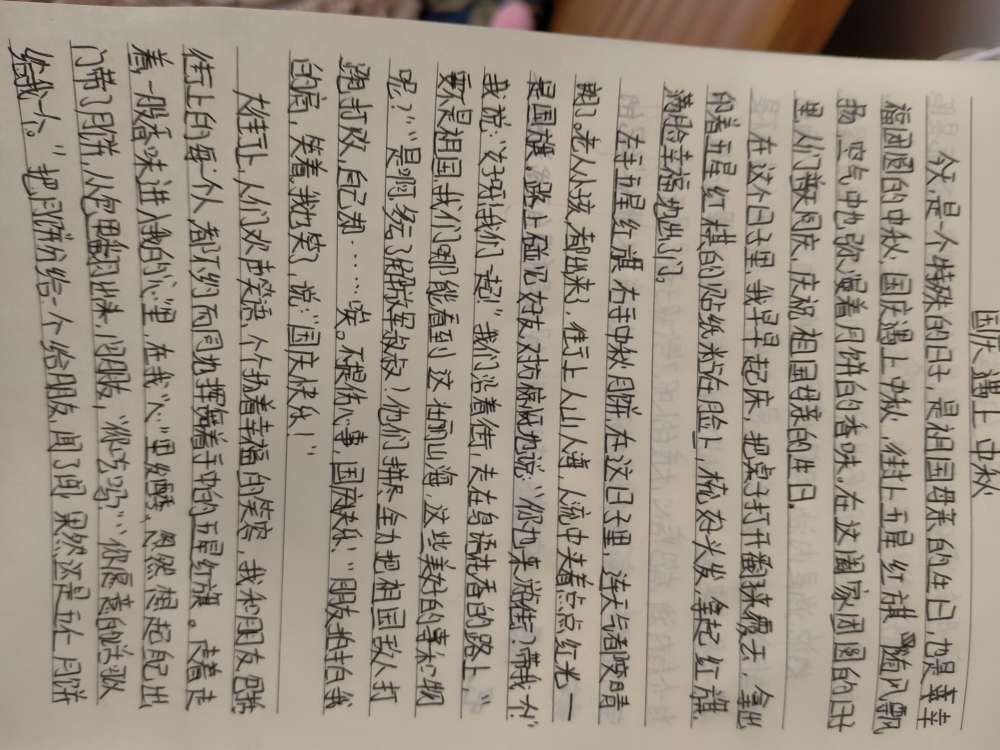 国庆遇上中秋
今天,是一个特殊的日子,是祖国母亲的生日,也是幸幸
福团圆的中秋,国庆遇上中秋,街上五星红旗随风飘
扬,空气中也弥漫着月饼的香味。在这阖家团圆的日子
里,人们普天同庆,庆祝祖国母亲的生日。
在这个日子里,我早早起床,把桌子打开翻来覆去,拿出
的着五星红旗的贴纸粘在脸上,梳衣头发,拿起红旗,
满脸幸福地出门。
左手五星红旗,右手中秋月饼,在这日子里,连天气都晴
朗了。老人小孩都出来了,街上人山人海,人流中夹着点点红光——
是国旗,路上碰见好友,对方惊讶地说:“你也来游街?带我一个”
我说:“好呀!我们一起”我们沿着街,走在鸟语花香的路上,“
要不是祖国,我们哪能看到这壮丽山海,这些美好的事和物
呢?”“是啊,多亏了解放军叔叔!他们拼尽全力把祖国敌人打
跑打败,自己却……唉。不提伤心事,国庆快乐!”朋友拍拍我
的肩,笑着,我也笑了,说:“国庆快乐!”
大街上,人们欢声笑语,个个扬着幸福的笑容,我和朋友包括
街上的每一个人,都不约而同地挥舞着手中的五星红旗。走着走
着,一股香味进入我的心里,在我心里发酵,忽然想起自己出
门带了月饼,从包里翻出来,问朋友,“你吃吗?”“你愿意的话,
给我一个。”把月饼分给一个给朋友,闻了闻,果然还是五仁月饼